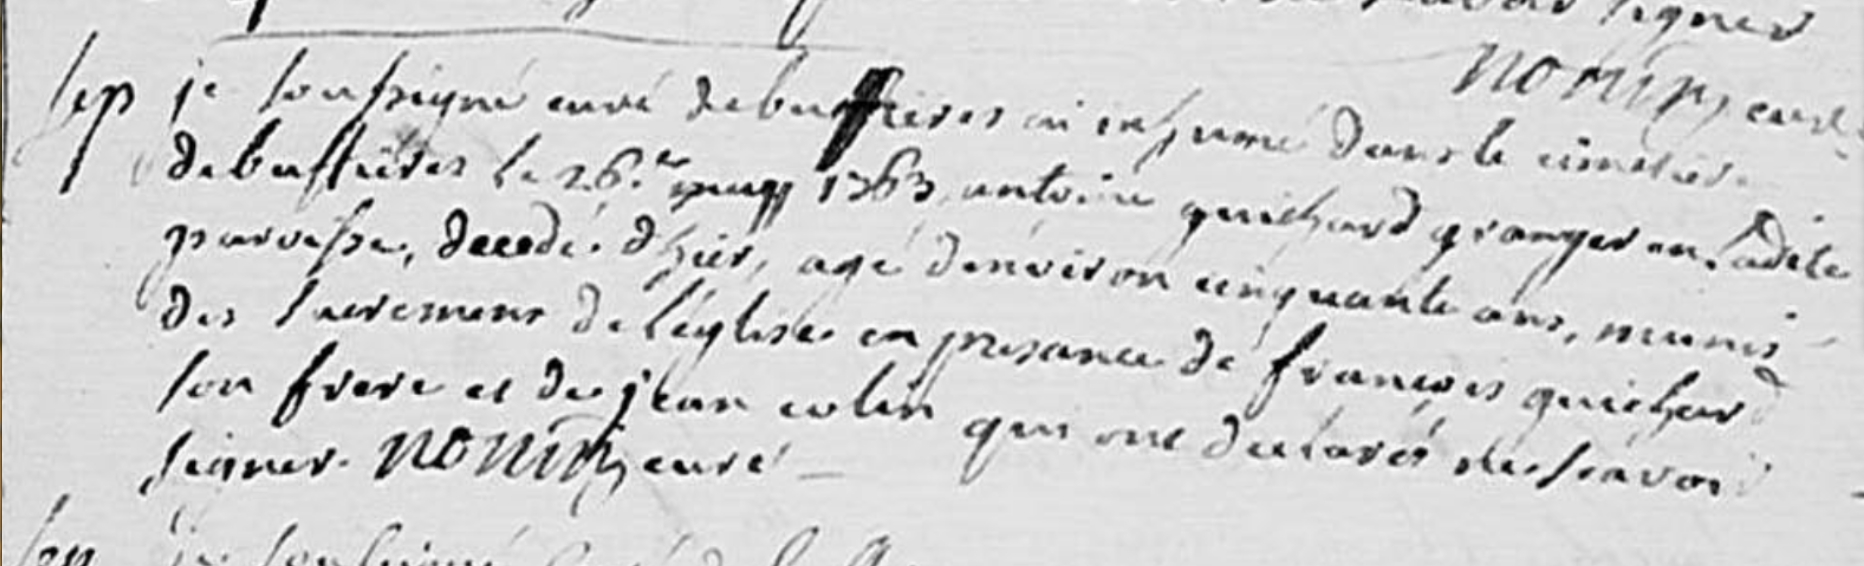 savoir signer
curé
sep je soussigné curé debussieres ai inhumé dans le cimetier
debussieres le 26.e 1763 antoine guichard granger en ladite
paroisse, decedé d'hier, agé d'environ cinquante ans, munis
des sacremens de l'eglise en presance de francois guichard
son frere et de jean colin qui ont declarés ne scavoir
signer. curé
sep je soussigné